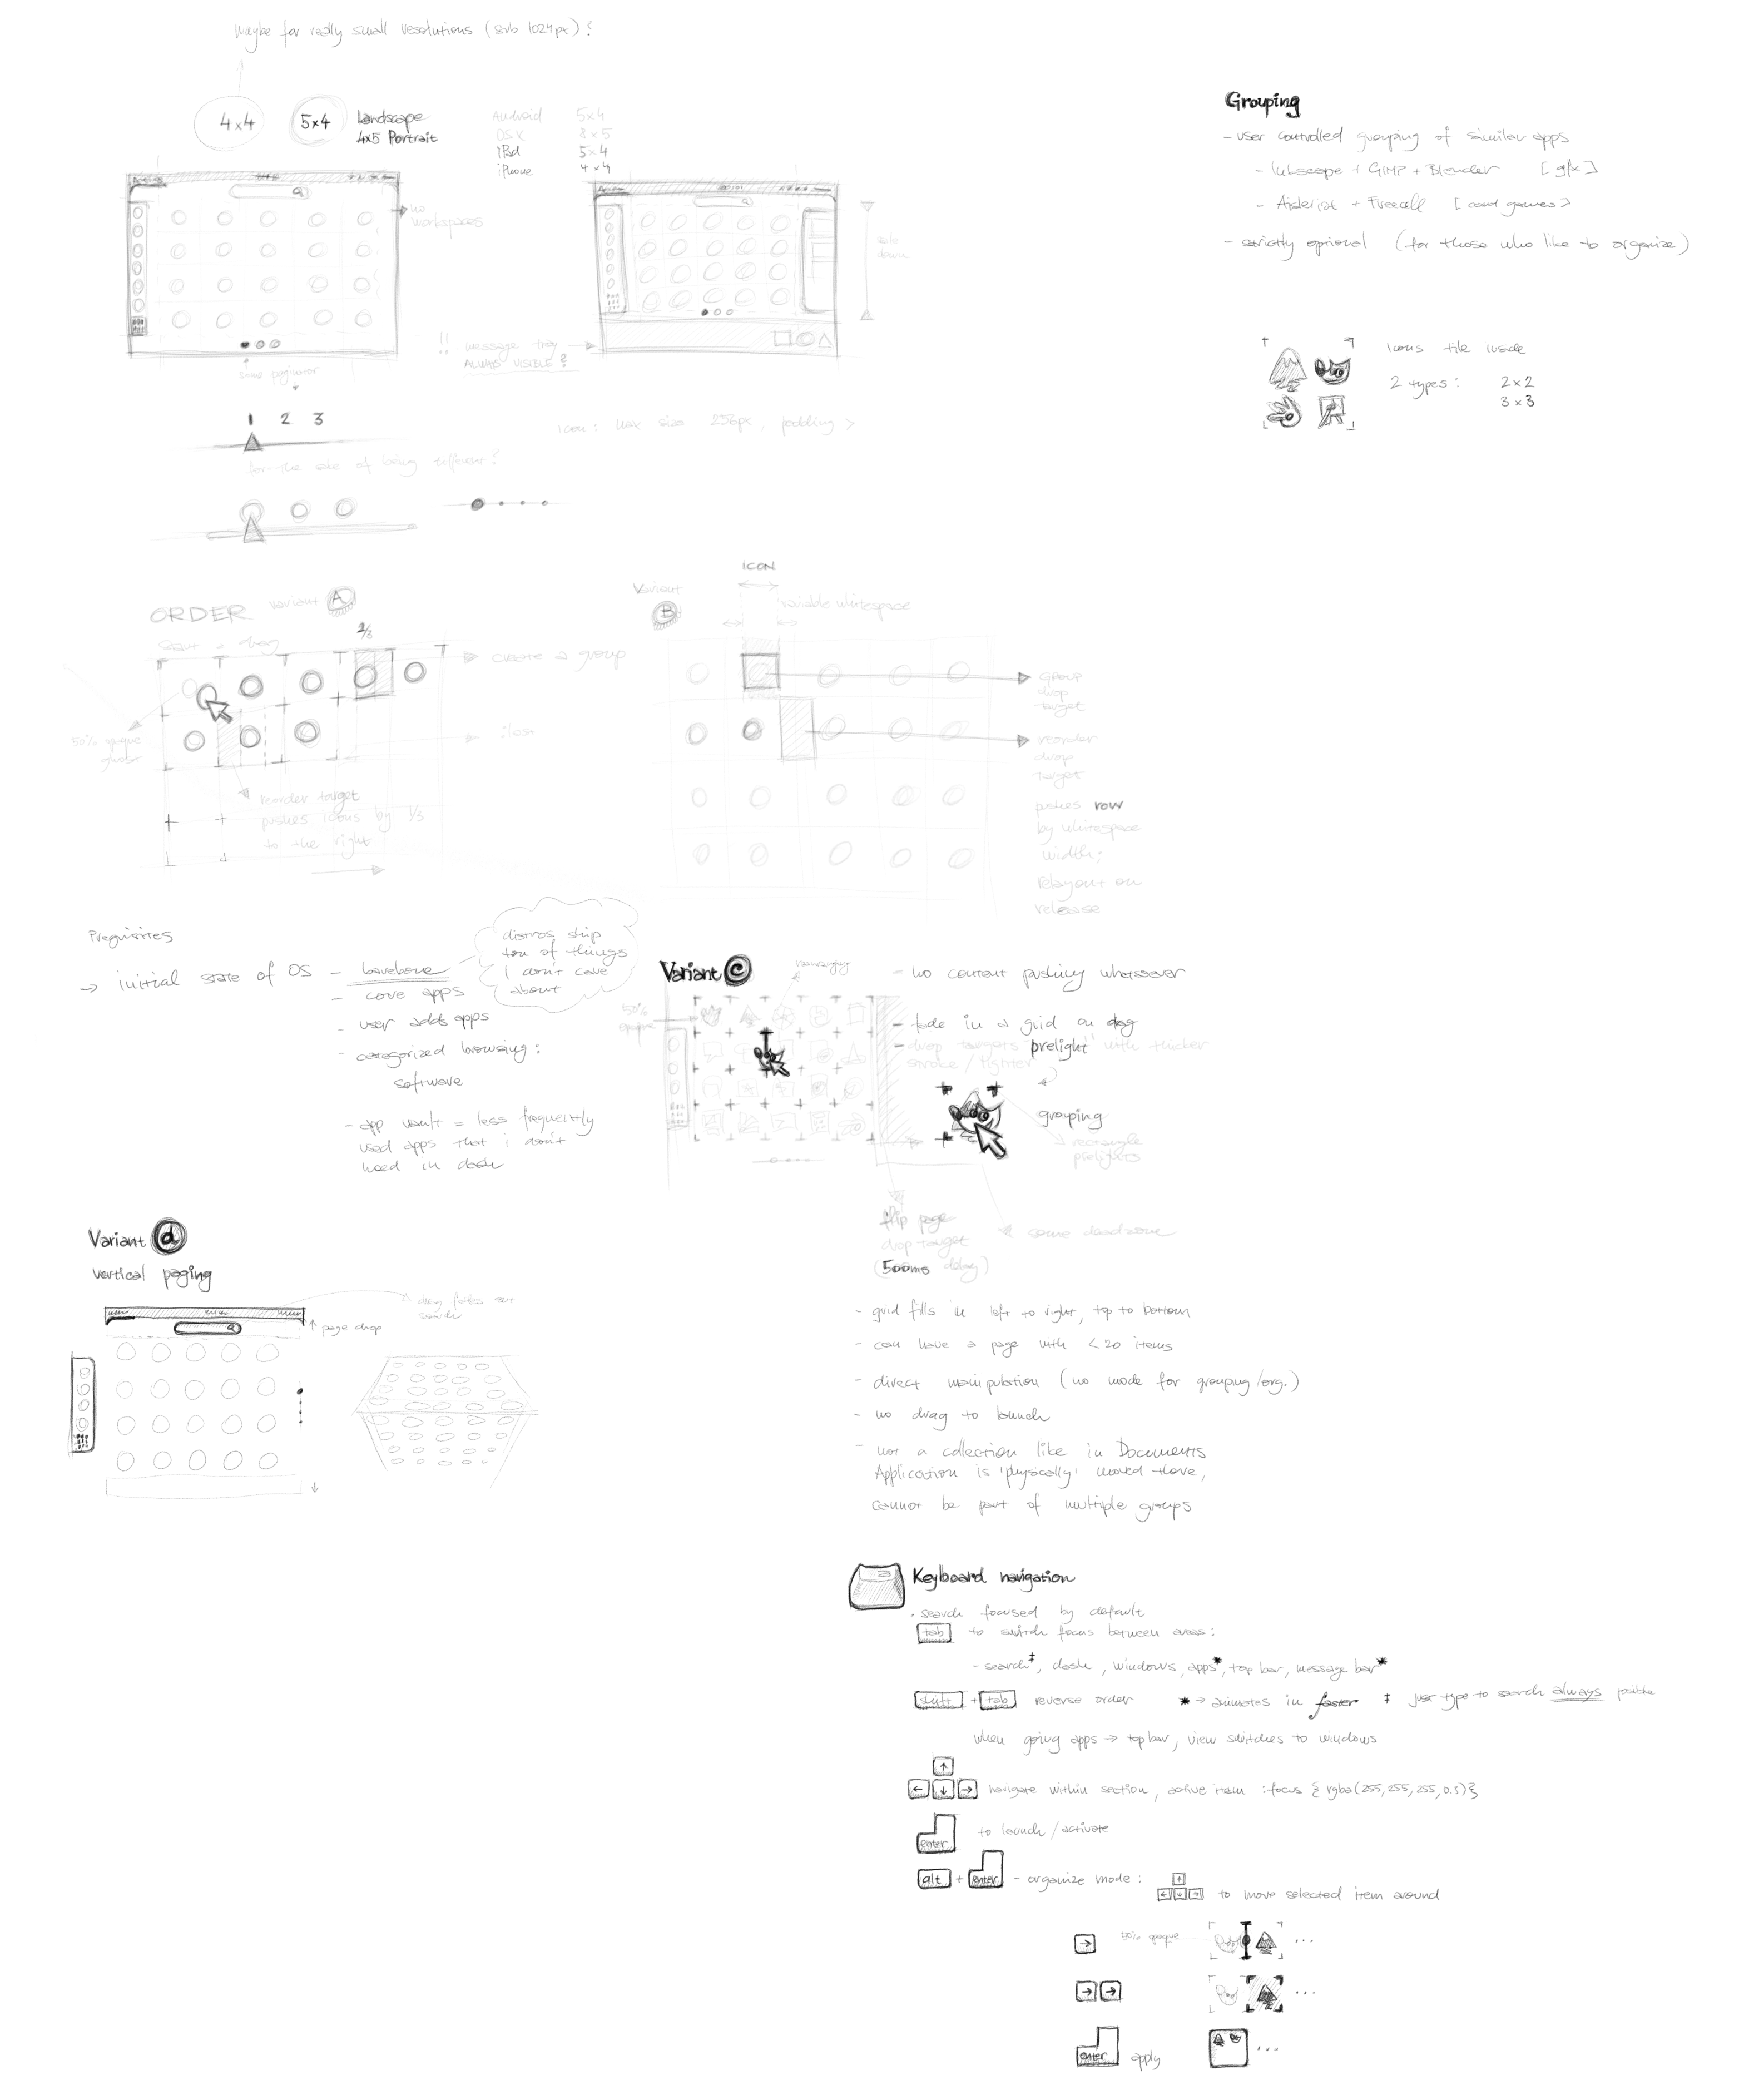 maybe for really small resolutions (sub 1024px)?
4x4
5x4
Landscape
4x5 Portrait
Android 5x4
OSX 8x5
iPad 5x4
iPhone 4x4
no
workspaces
!! message tray
ALWAYS VISIBLE?
some paginator
1 2 3
for the sake of being different?
icon: max size 256px, padding >
Grouping
- user controlled grouping of similar apps
- Inkscape + GIMP + Blender [gfx]
- Aisleriot + Freecell [card games]
- strictly optional (for those who like to organize)
icons tile inside
2 types: 2x2
3x3
ORDER variant A
1/3
create a group
50% opaque
ghost
reorder target
pushes icons by 1/3
to the right
Variant
B
ICON
variable whitespace
group
drop
target
reorder
drop
target
pushes row
by whitespace
width;
relayout on
release
Prequisities
→ initial state of OS - barebone
- core apps
- user adds apps
- categorized browsing:
software
- app vault = less frequently
used apps that i don't
need in dash
distros ship
ton of things
I don't care
about
Variant C
rearranging
50%
opaque
- no content pushing whatsoever
- fade in a grid on drag
- drop targets "prelight" with thicker
stroke / lighter
grouping
rectangle
prelights
flip page
drop target
(500ms delay)
some deadzone
- grid fills in left to right, top to bottom
- can have a page with <20 items
- direct manipulation (no mode for grouping/org.)
- no drag to launch
- not a collection like in Documents
Application is 'physically' moved there,
cannot be part of multiple groups
Variant d
vertical paging
page drop
Keyboard navigation
. search focused by default
tab to switch focus between areas:
- search‡, dash, windows, apps*, top bar, message bar*
shift + tab reverse order * → animates in faster ‡ just type to search always posible
when going apps → top bar, view switches to windows
↑
← ↓ → navigate within section, active item :focus { rgba(255,255,255,0.5)}
enter to launch / activate
alt + enter - organize mode: ↑
← ↓ → to move selected item around
→ 50% opaque ...
→ → ...
enter apply ...